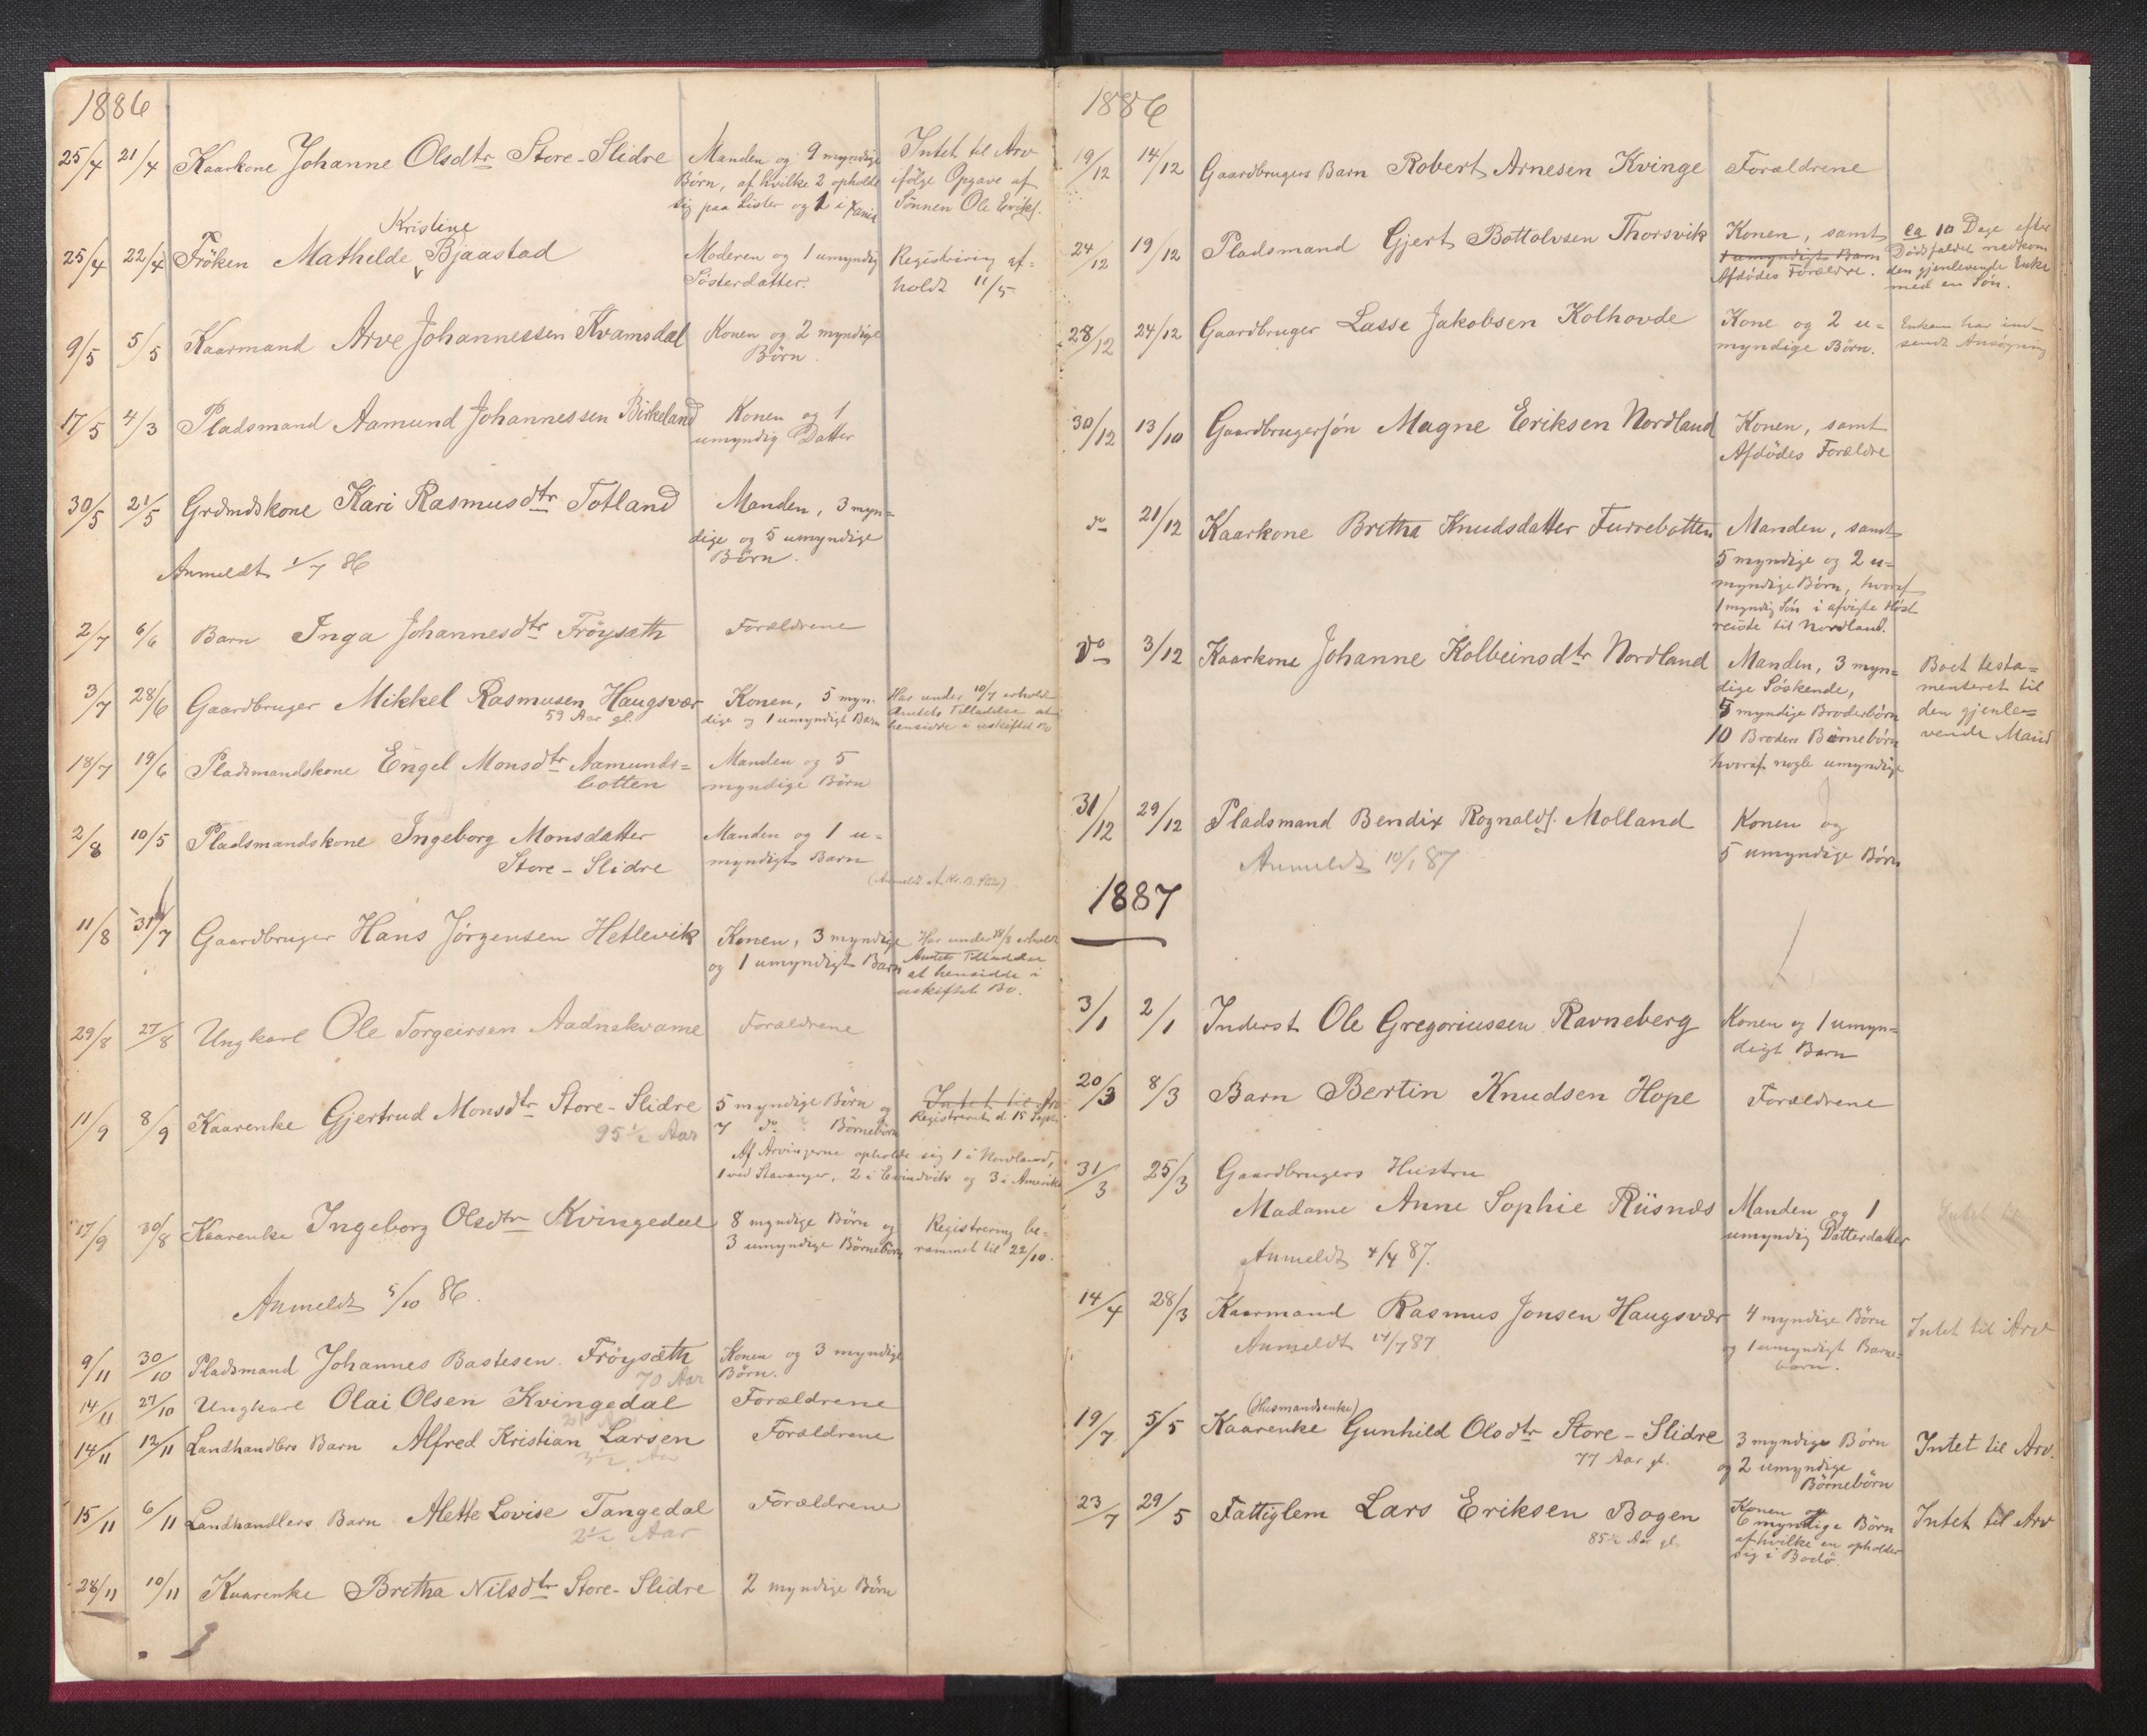 1886
25/4 21/4 Kaarkone Johanne Olsdtr Store-Slidre Manden og 9 myndige Intet til Arv
Børn, af hvilke 2 opholde ifølge Opgave af
sig paa Lister og 1 i Xania Sønnen Ole Eriks.
Kristine
25/4 22/4 Frøken Mathilde Bjaastad Moderen og 1 umyndig Registrering af-
Søsterdatter. holdt 11/5
9/5 5/5 Kaarmand Arve Johannessen Kvamsdal Konen og 2 myndige
Børn.
17/5 4/3 Pladsmand Aamund Johannessen Birkeland Konen og 1
umyndig Datter
30/5 21/5 Grdmdskone Kari Rasmusdtr Totland Manden, 3 myn-
dige og 5 umyndige
Børn.
Anmeldt 1/7 86
2/7 6/6 Barn Inga Johannesdtr Frøysæth Forældrene
3/7 28/6 Gaardbruger Mikkel Rasmusen Haugsvær Konen, 5 myn- Har under 10/7 erholdt
59 Aar gl. dige og 1 umyndigt Barn Amtets Tilladelse at
hensidde i uskiftet Bo
18/7 19/6 Pladsmandskone Engel Monsdtr Aamunds- Manden og 5
botten myndige Børn
2/8 10/5 Pladsmandskone Ingeborg Monsdatter Manden og 1 u-
Store-Slidre myndigt Barn
11/8 31/7 Gaardbruger Hans Jørgensen Hetlevik Konen, 3 myndige Har under 18/8 erholdt
og 1 umyndigt Barn Amtets Tilladelse
at hensidde i
uskiftet Bo.
29/8 27/8 Ungkarl Ole Torgeirsen Aadnekvame Forældrene
11/9 8/9 Kaarenke Gjertrud Monsdtr Store-Slidre 5 myndige Børn og Intet til Arv
95 1/2 Aar 7 do Børnebørn Registreret d. 15 Sept.
Af Arvingerne opholde sig 1 i Nordland,
1 ved Stavanger, 2 i Evindvik og 3 i Amerika
17/9 30/8 Kaarenke Ingeborg Olsdtr Kvingedal 8 myndige Børn og Registrering be-
3 umyndige Børnebørn rammet til 22/10.
Anmeldt 5/10 86.
9/11 30/10 Pladsmand Johannes Bastesen Frøysæth Konen og 3 myndige
70 Aar Børn.
14/11 27/10 Ungkarl Olai Olsen Kvingedal Forældrene
14/11 12/11 Landhandlers Barn Alfred Kristian Larsen Forældrene
15/11 6/11 Landhandlers Barn Alette Lovise Tangedal Forældrene
2 1/2 Aar
28/11 10/11 Kaarenke Bretha Nilsdtr Store-Slidre 2 myndige Børn
1886
19/12 14/12 Gaardbrugers Barn Robert Arnesen Kvinge Forældrene
24/12 19/12 Pladsmand Gjert Bottolvsen Thorsvik Konen, samt ca 10 Dage efter
1 umyndigt Barn Dødsfaldet nedkom
Afdødes Forældre. den gjenlevende Enke
med en Søn.
28/12 24/12 Gaardbruger Lasse Jakobsen Kolhovde Kone og 2 u- Enken har ind-
myndige Børn. sendt Ansøgning
30/12 13/10 Gaardbrugersøn Magne Eriksen Nordland Konen, samt
Afdødes Forældre
do 21/12 Kaarkone Bretha Knudsdatter Furrebotten Manden, samt
5 myndige og 2 u-
myndige Børn, hvoraf
1 myndig Søn i afvigte Høst
reiste til Nordland.
Do 3/12 Kaarkone Johanne Kolbeinsdtr Nordland Manden, 3 myn- Boet testa-
dige Søskende, menteret til
5 myndige Broderbørn den gjenle-
10 Broders Børnebørn vende Mand
hvoraf nogle umyndige
31/12 29/12 Pladsmand Bendix Rognalds. Molland Konen og
5 umyndige Børn
Anmeldt 10/1 87
1887
3/1 2/1 Inderst Ole Gregoriussen Ravneberg Konen og 1 umyn-
digt Barn
20/3 8/3 Barn Bertin Knudsen Hope Forældrene
31/3 25/3 Gaardbrugers Hustru
Madame Anne Sophie Riisnæs Manden og 1
umyndig Datterdatter
Anmeldt 4/4 87.
14/4 28/3 Kaarmand Rasmus Jonsen Haugsvær 4 myndige Børn Intet til Arv
Anmeldt 14/7 87 og 1 umyndigt Barne-
barn.
(Husmandsenke)
19/7 5/5 Kaarenke Gunhild Olsdtr Store-Slidre 3 myndige Børn Intet til Arv.
77 Aar gl. og 2 umyndige
Børnebørn
23/7 29/5 Fattiglem Lars Eriksen Bogen Konen og Intet til Arv
85 1/2 Aar gl. 6 myndige Børn
af hvilke en opholder
sig i Bodø.